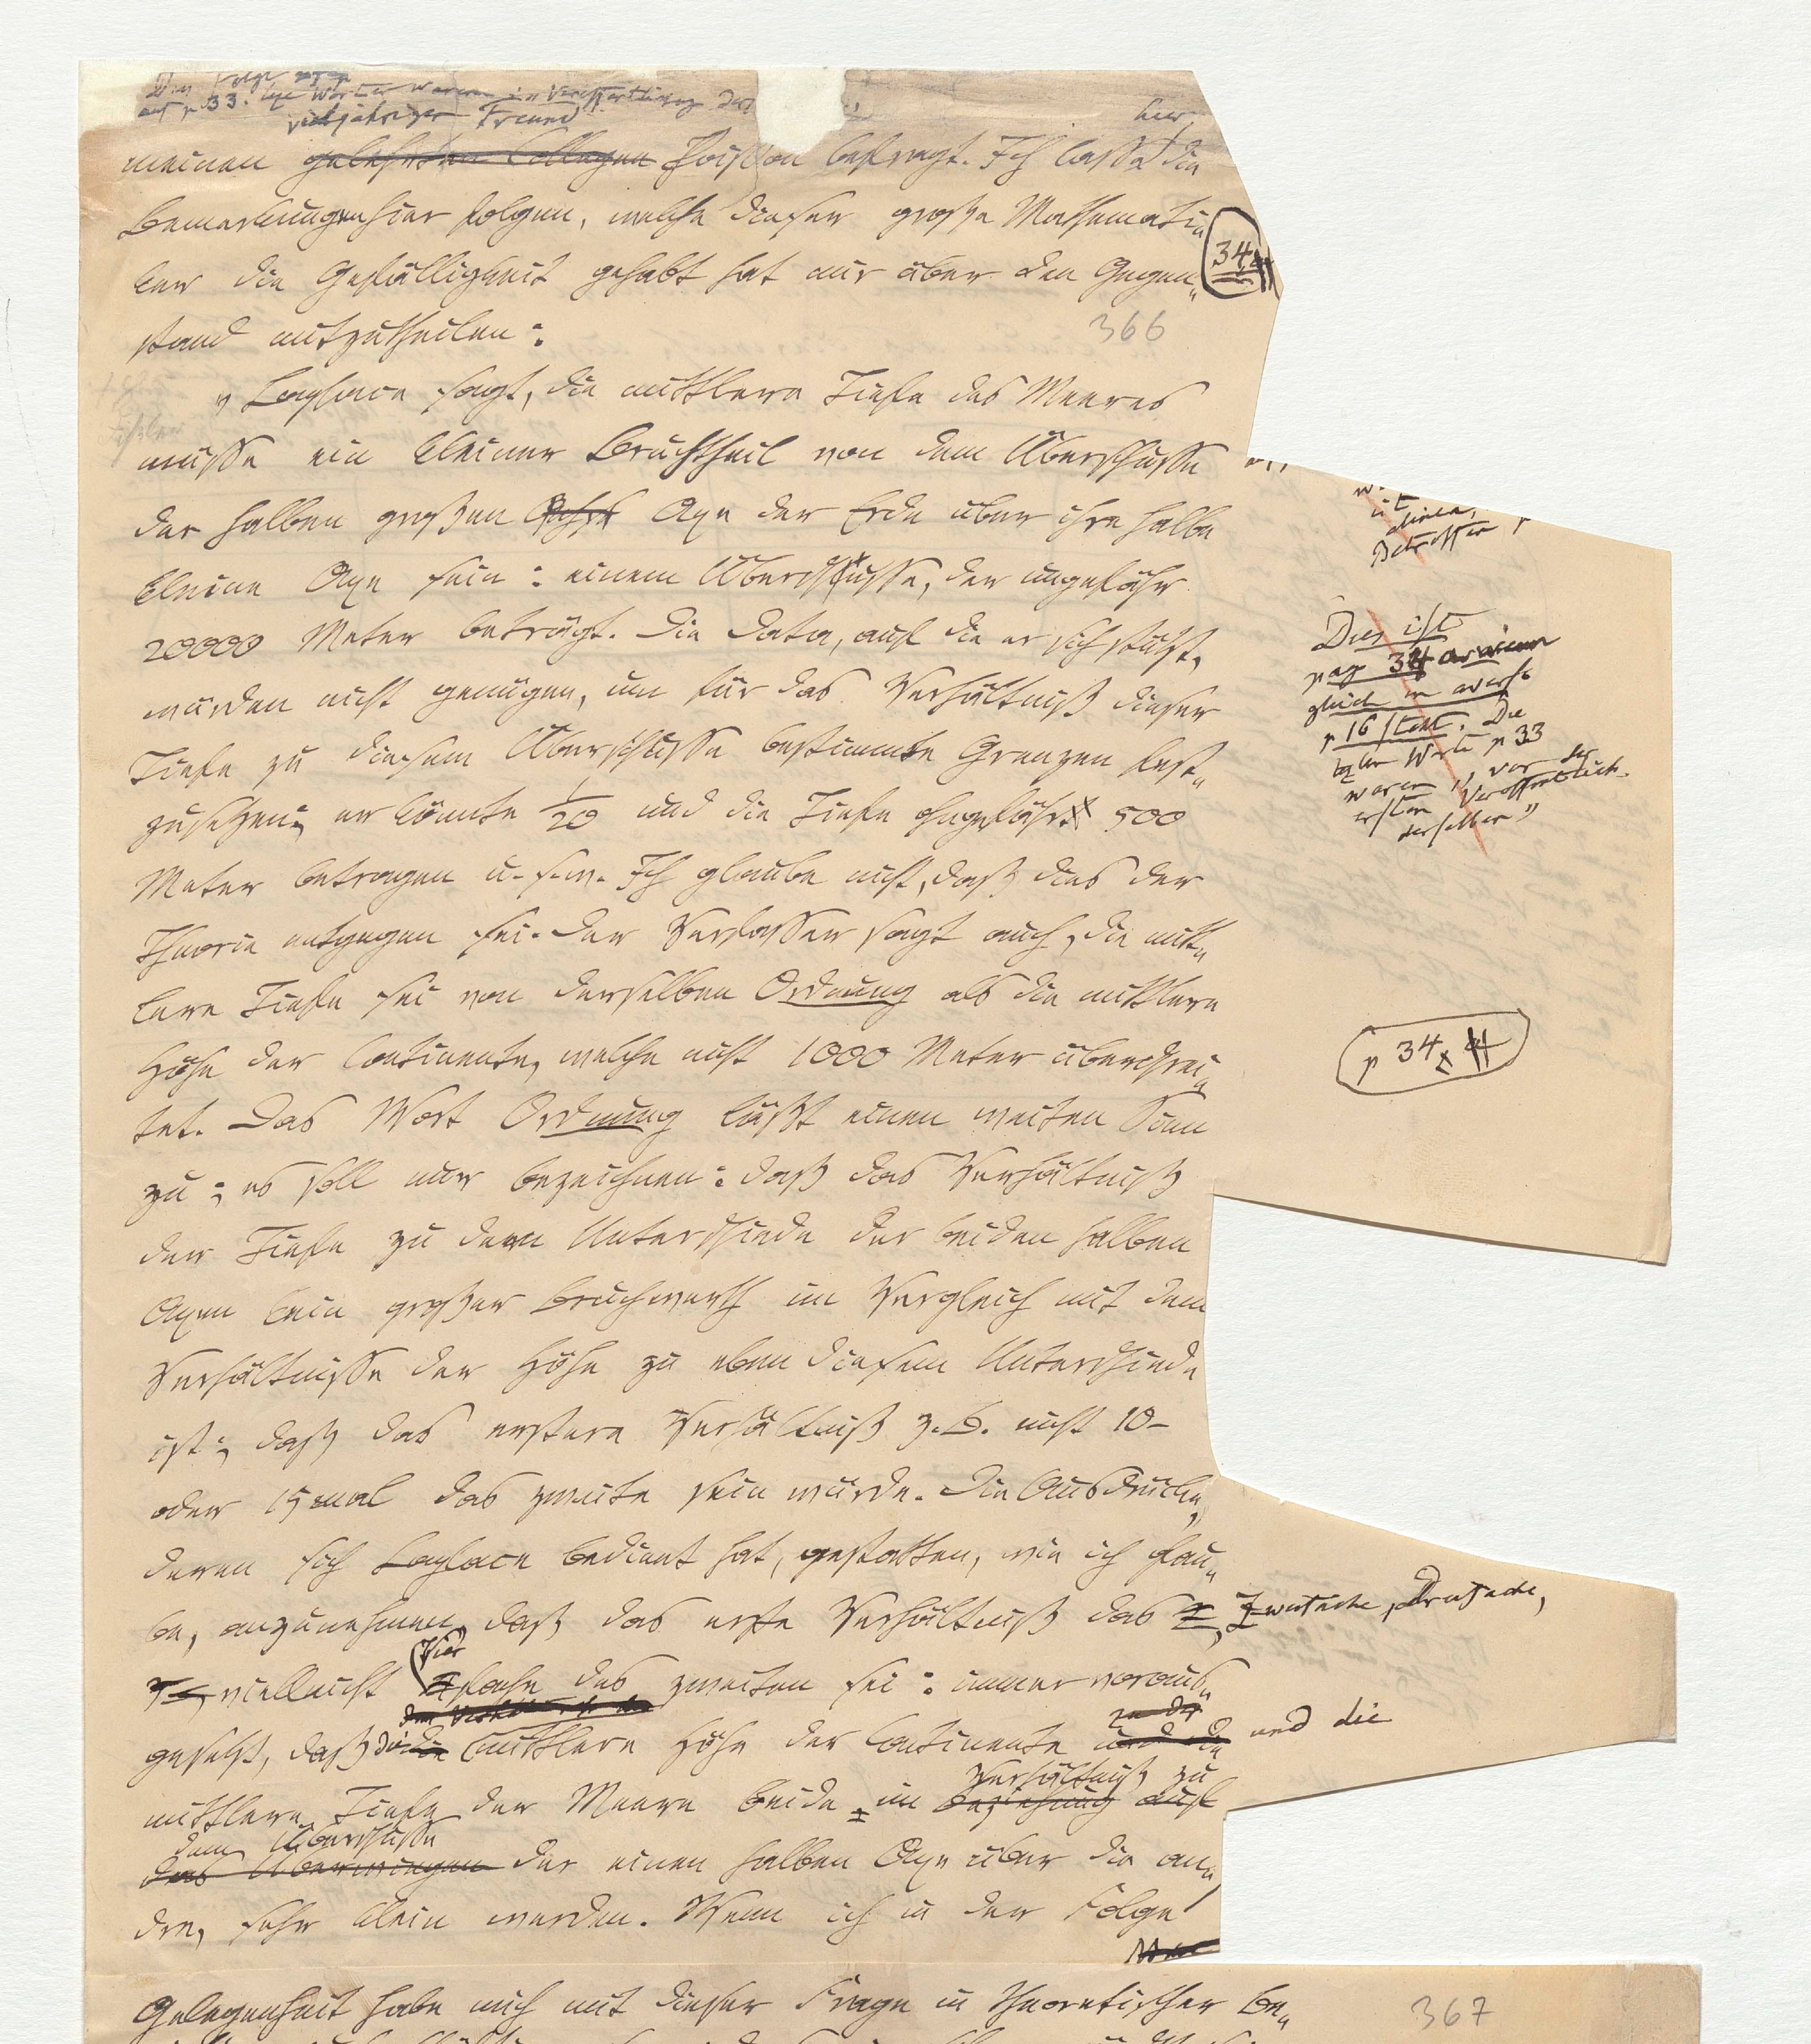 Dies folgt
auf p 33. lezte Wörter waren „Veröffentlichung der
vieljähriger Freund
hier
meinen gelehrten Collegen Poisson befragt. Ich lasse die
Bemerkungen hier folgen, welche dieser große Mathemati„
ker die Gefälligkeit gehabt hat mir über den Gegen„
34
stand mitzutheilen:
366
„Laplace sagt, die mittlere Tiefe des Meeres
müsse ein kleiner Bruchtheil von dem Überschusse
der halben großen Axe der Erde über ihre halbe
kleine Axe sein: einem Überschusse, der ungefähr
20000 Meter beträgt. Die Data, auf die er sich stützt,
würden nicht genügen, um für das Verhältniß dieser
Tiefe zu diesem Überschusse bestimmte Grenzen fest„
zusetzen; er könnte 1/20 und die Tiefe ungefähr 500
Meter betragen u. s. w. Ich glaube nicht, daß dies der
Theorie entgegen sei. Der Verfasser sagt auch, die mitt„
lere Tiefe sei von derselben Ordnung als die mittlere
Höhe der Continente, welche nicht 1000 Meter überschrei„
tet. Das Wort Ordnung läßt einen weiten Sinn
zu; es soll nur bezeichnen: daß das Verhältniß
der Tiefe zu dem Unterschiede der beiden halben
Axen kein großer Bruchwerth im Vergleich mit dem
Verhältnisse der Höhe zu eben diesem Unterschiede
ist; daß das erstere Verhältniß z. B. nicht 10-
oder 15 mal das zweite sein würde. Die Ausdrücke,
deren sich Laplace bedient hat, gestatten, wie ich glau„
be, anzunehmen, daß das erste Verhältniß das 2, Zweifache, Dreifache,
3, vielleicht Vierfache des zweiten sei: immer voraus„
zu der
gesetzt, daß die mittlere Höhe der Continente und die und die
Verhältniß zu
mittlere Tiefe der Meere beide im Beziehung auf
dem Überschusse
das Überwiegen der einen halben Axe über die an„
dre, sehr klein werden. Wenn ich in der Folge
Gelegenheit habe mich mit dieser Frage in theoretischer Be„
367
Betreffer
Dies ist
pag 34
gleich
p 16 steht. Die
lezten Worte p 33
waren „vor der
ersten Veröffentlich.
derselben"
p 34